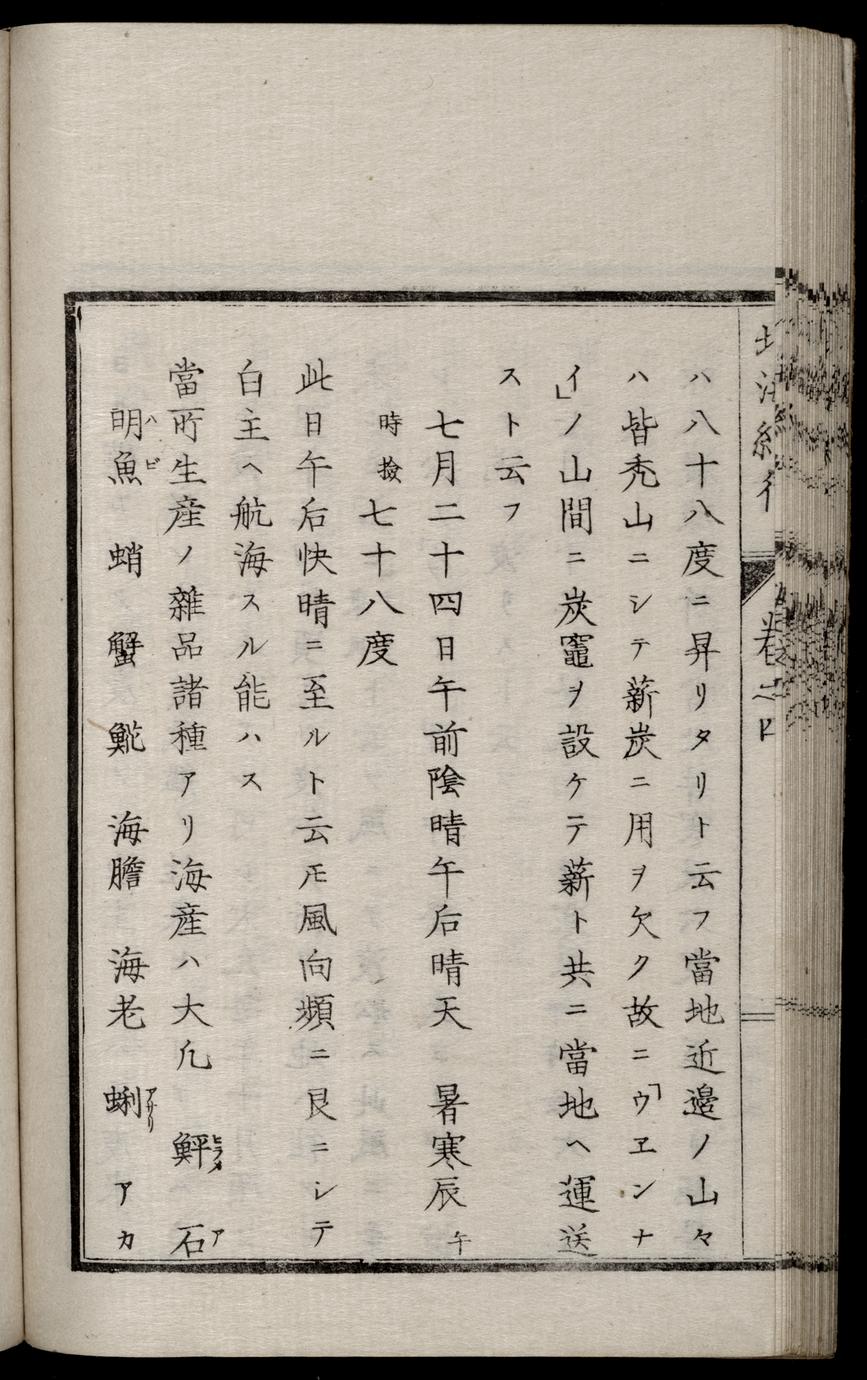 ハ八十八度ニ昇リタリト云フ當地近邉ノ山々
ハ皆禿山ニシテ薪炭ニ用ヲ欠ク故ニ「ウヱンナ
イ」ノ山間ニ炭竈ヲ設ケテ薪ト共ニ當地ヘ運送
スト云フ
七月二十四日午前陰晴午后晴天 暑寒辰 午
時撿七十八度
此日午后快晴ニ至ルト云𪜈風向頻ニ艮ニシテ
白主ヘ航海スル能ハス
當所生産ノ雜品諸種アリ海産ハ大凢 鮃ヒラメ 石ア
明ハ魚ビ 蛸 蟹 魤 海膽 海老 蜊アサリ アカ